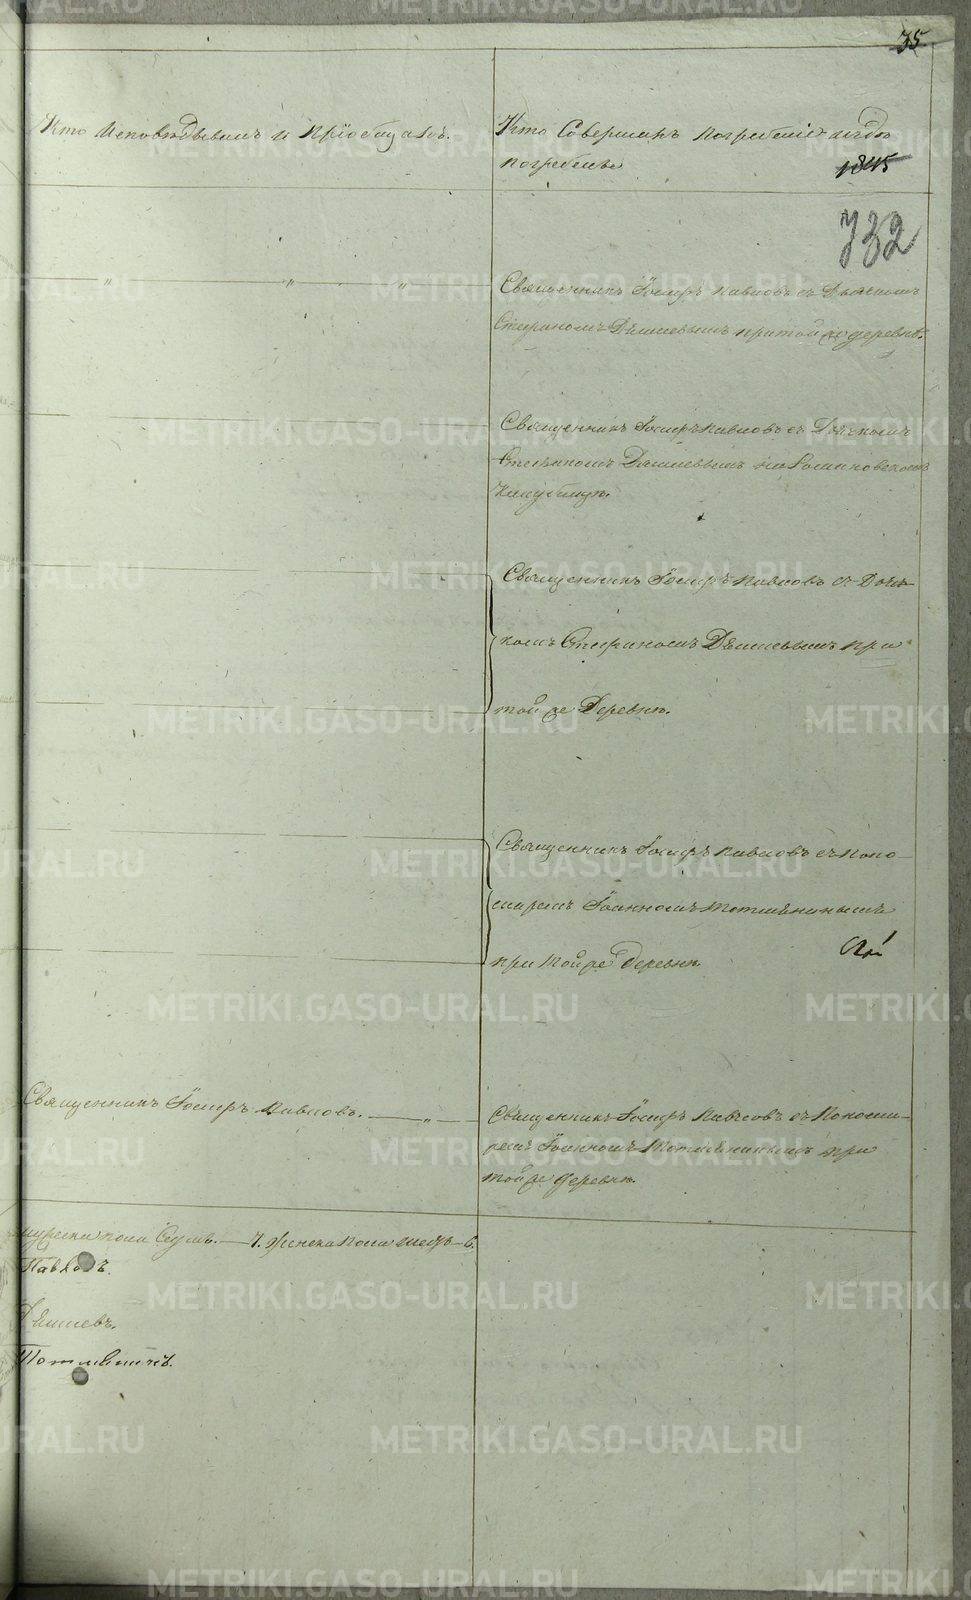 35
Кто Исповѣдывалъ и Пріобщалъ.
Кто Совершалъ погребеніе и гдѣ
погребены
1845
732
Священникъ Іосифъ Павловъ съ Дьячкомъ
Стефаномъ Дѣшиевымъ при той же деревнѣ.
Священникъ Іосифъ Павловъ съ Дьячкомъ
Стефаномъ на Романовскомъ
Кладбищѣ.
Священникъ Іосифъ Павловъ съ Дьяч-
комъ Стефаномъ при
той же Деревнѣ.
Священникъ Іосифъ Павловъ съ Поно-
маремъ Іоанномъ Топмлѣнинымъ
при той же Деревнѣ.
Священникъ Іосифъ Павловъ.
Священникъ Іосифъ Павловъ съ Понома-
ремъ Іоанномъ при
той же Деревнѣ.
мужеска пола Семь. — 7. Женска пола шесть — 6.
Павловъ.
METRIKI.GASO-URAL.RU